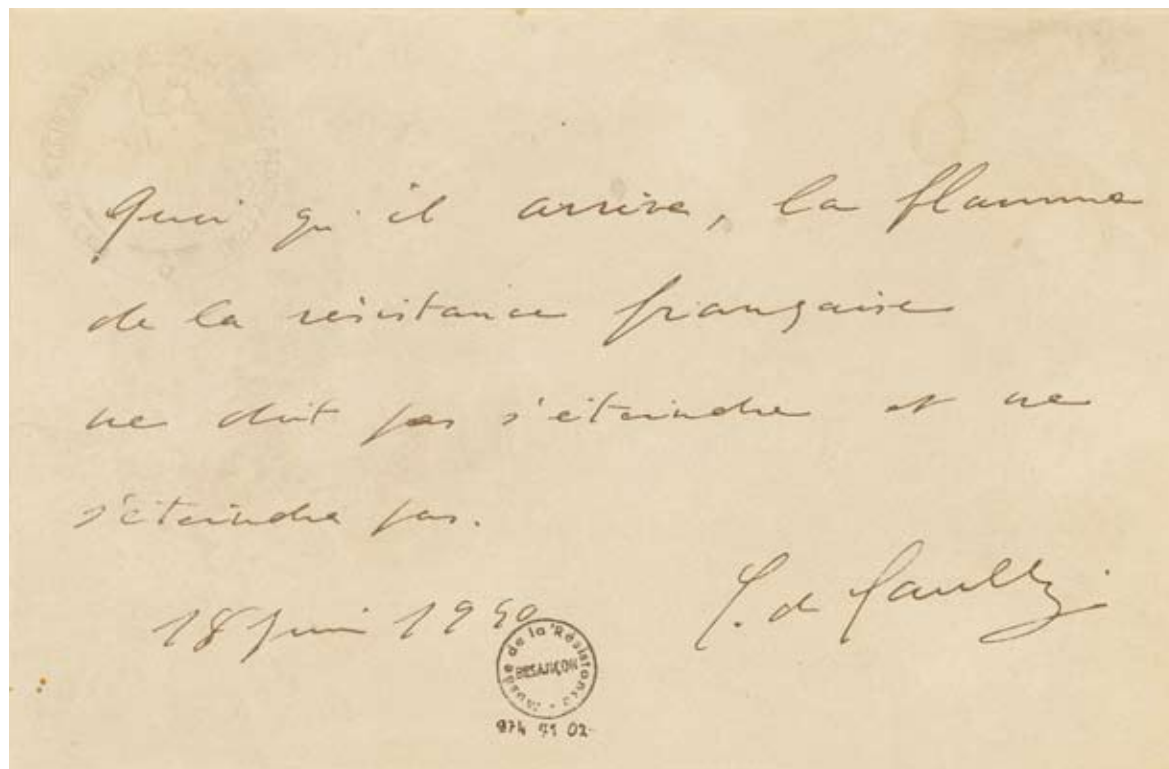 Quoi qu'il arrive, la flamme
de la résistance française
ne doit pas s'éteindre et ne
s'éteindra pas.
18 juin 1940
C. de Gaulle.
Musée de la Résistance
BESANÇON